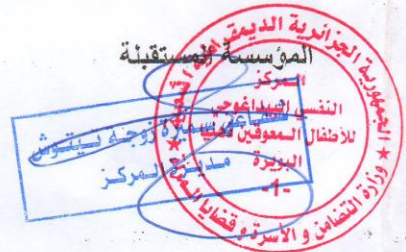 المؤسسة المستقبلة
الجمهورية الجزائرية الديمقراطية الشعبية
وزارة التضامن و الأسرة و قضايا المرأة
المركز
النفسي البيداغوجي
للأطفال المعوقين ذهنيا
البويرة
-1-
سميرة زوجة تيتوش
مديرة المركز